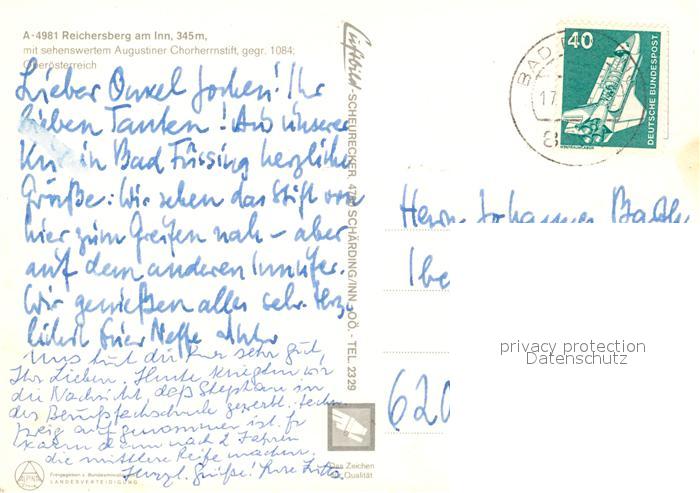 A-4981 Reichersberg am Inn, 345m,
mit sehenswertem Augustiner Chorherrnstift, gegr. 1084;
Oberösterreich
Lieber Onkel Jochen! Ihr
lieben Tanten! Aus unserer
Kur in Bad Füssing herzliche
Grüße. Wir sehen das Stift von
hier zum Greifen nah – aber
auf dem anderen Innufer.
Wir genießen alles sehr. Herz-
lichst Euer Neffe
Uns tut die Kur sehr gut,
Ihr Lieben. Heute kriegten wir
die Nachricht, daß Stephan in
der Berufsfachschule gewerbl. techn.
Zweig aufgenommen ist. Er
kann dann nach 2 Jahren
die mittlere Reife machen.
Herzl. Grüße! Eure
Freigegeben v. Bundesministerium
LANDESVERTEIDIGUNG
ALPINA
Luftbild SCHEURECKER, 4780 SCHÄRDING/INN, OÖ. - TEL. 23 29
Das Zeichen
für Qualität
BAD
17.
8
40
DEUTSCHE BUNDESPOST
Herrn Johannes
620
privacy protection
Datenschutz